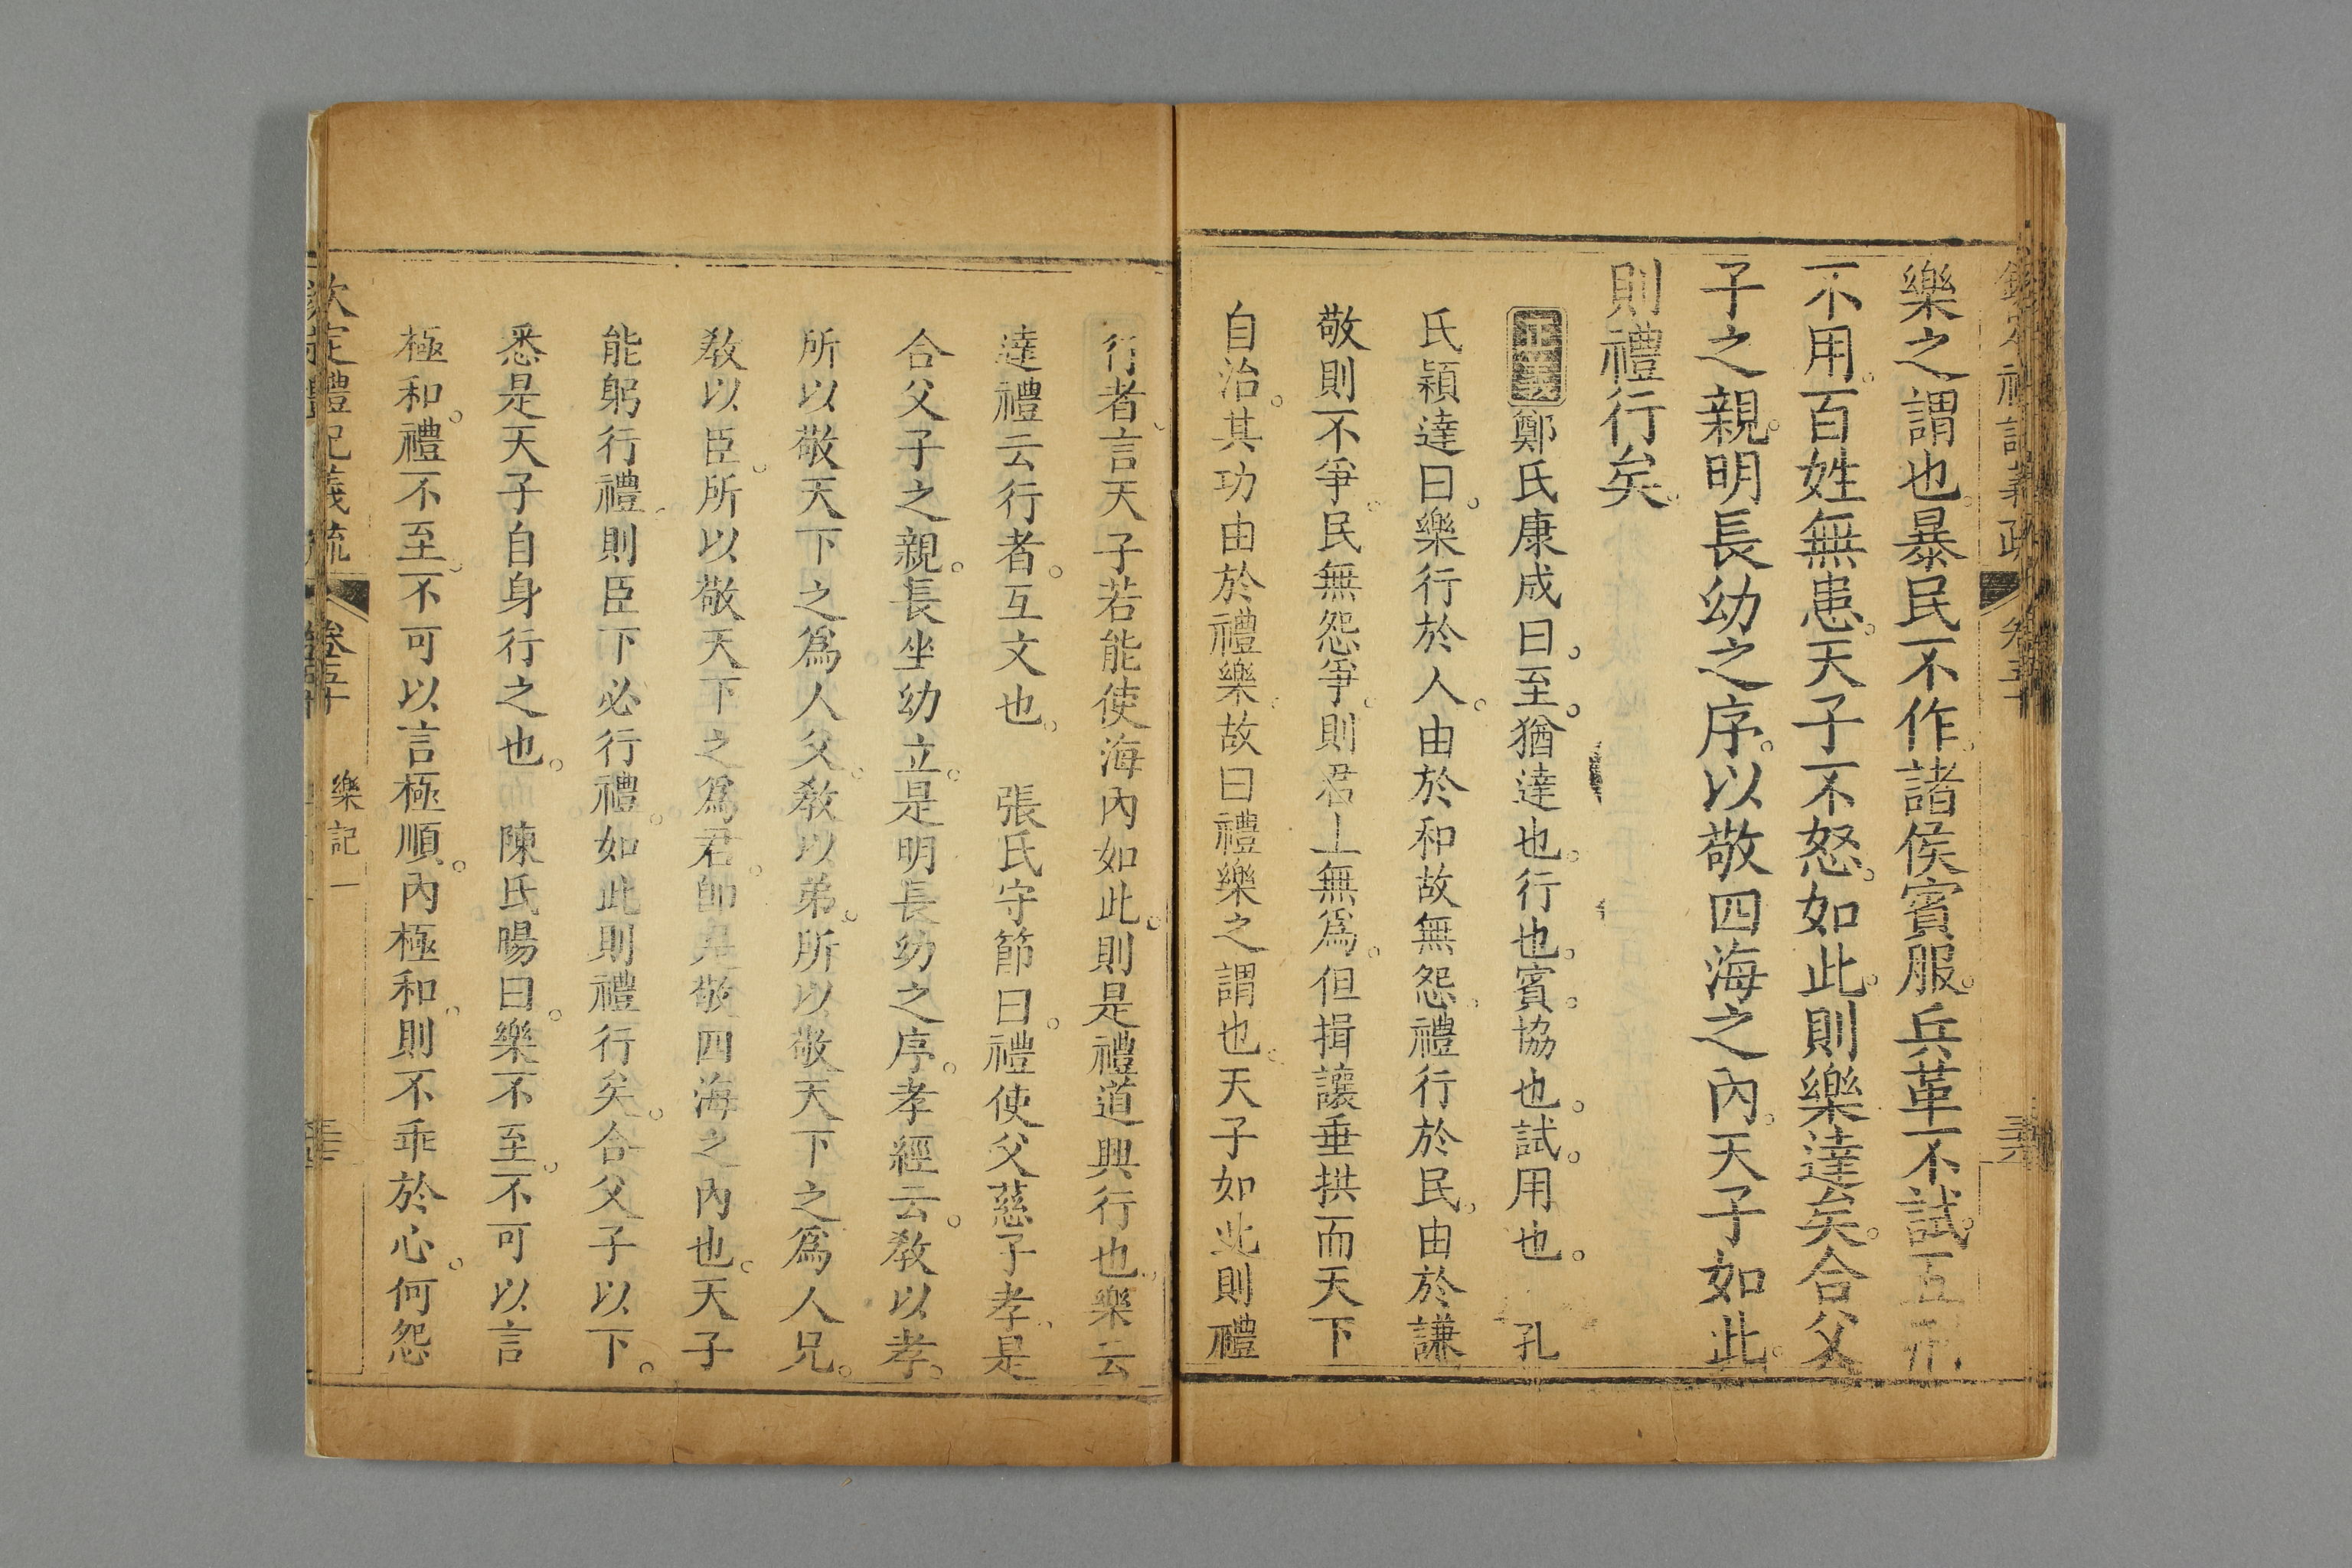 樂之謂也。暴民不作。諸侯賓服。兵革不試。五刑
不用。百姓無患。天子不怒。如此。則樂達矣。合父
子之親。明長幼之序。以敬四海之內。天子如此。
則禮行矣。
正義鄭氏康成曰。至。猶達也。行也。賓。協也。試。用也。孔
氏穎達曰。樂行於人。由於和故無怨。禮行於民。由於謙
敬則不爭。民無怨爭。則君上無為。但揖讓垂拱而天下
自治。其功由於禮樂。故曰禮樂之謂也。天子如此則禮
行者。言天子若能使海內如此。則是禮道興行也。樂云
達。禮云行者。互文也。 張氏守節曰。禮使父慈子孝。是
合父子之親。長坐幼立。是明長幼之序。孝經云。教以孝。
所以敬天下之為人父。教以弟。所以敬天下之為人兄。
教以臣。所以敬天下之為君。即是敬四海之內也。天子
能躬行禮。則臣下必行禮。如此則禮行矣。合父子以下。
悉是天子自身行之也。 陳氏暘曰。樂不至。不可以言
極和。禮不至。不可以言極順。內極和。則不乖於心。何怨
欽定禮記義疏 卷五十 樂記一